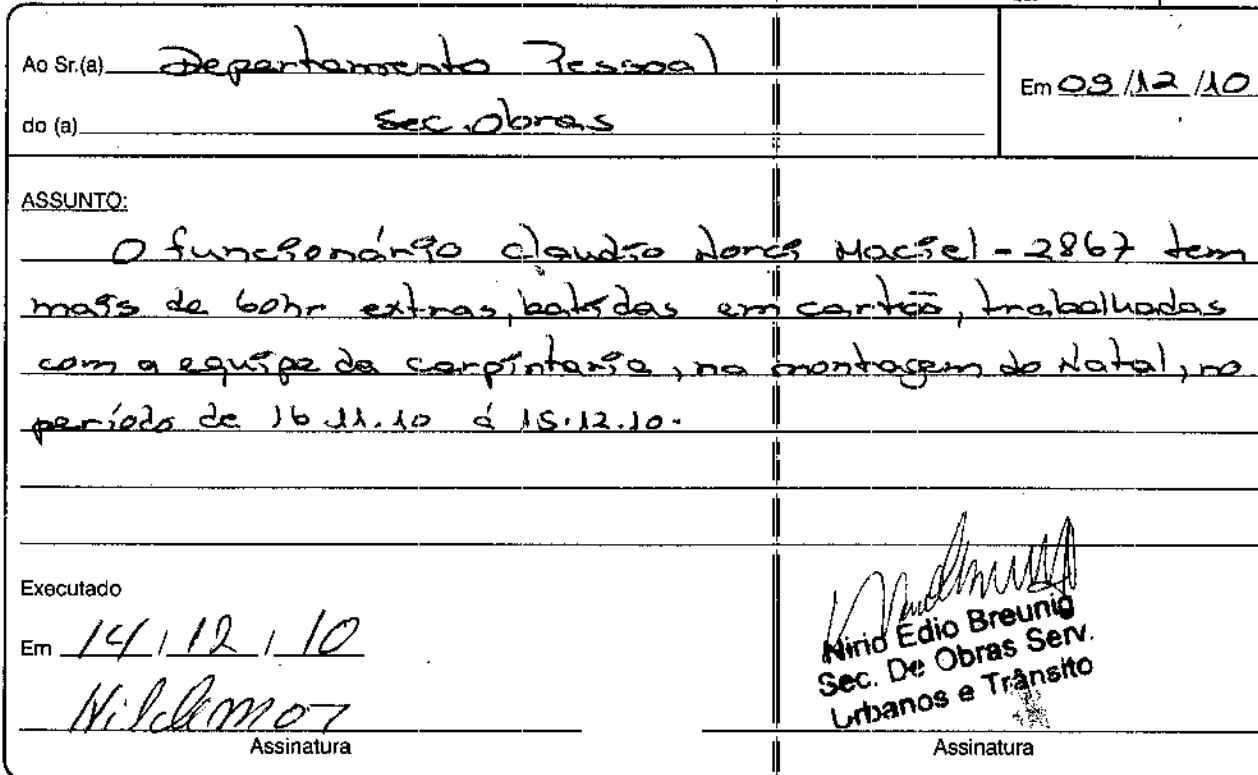 Ao Sr.(a) Departamento Pessoal
Em 09/12/10
do (a) Sec. Obras
ASSUNTO:
O funcionário Claudio Norci Maciel - 2867 tem
mais de 60hr extras, batidas em cartão, trabalhadas
com a equipe da carpintaria, na montagem do Natal, no
período de 16.11.10 á 15.12.10.
Executado
Em 14/12/10
Nirio Edio Breunig
Sec. De Obras Serv.
Urbanos e Trânsito
Assinatura
Assinatura